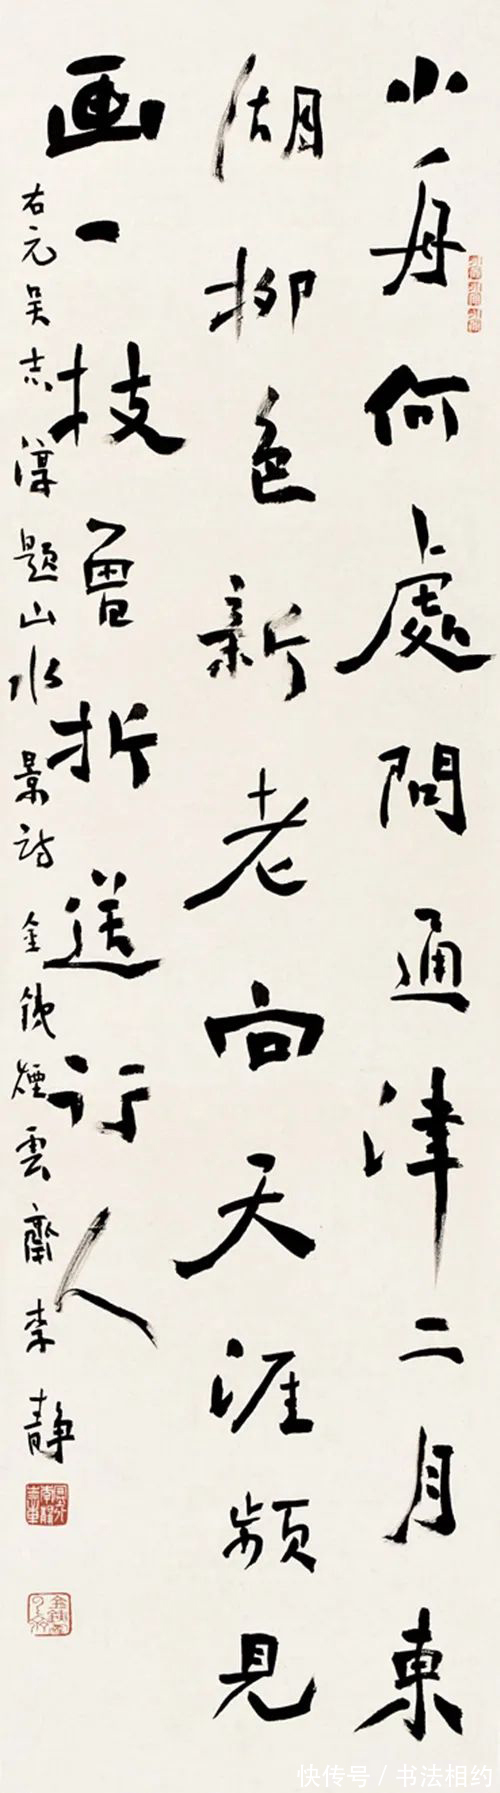 小舟何處問通津二月東
湖柳色新老向天涯頻見
画一枝曾折送行人
右元吴志淳題山水景詩 金煙雲齋李静
快传号 / 书法相约